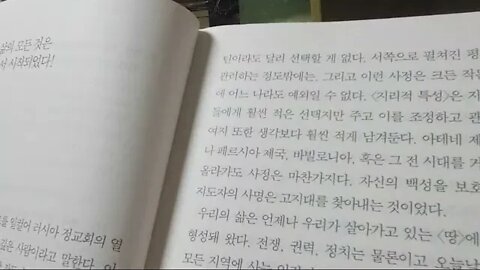 삶의 모든 것은
서 시작되었다!
를 일컬어 러시아 정교회의 열
깊은 사람이라고 말한다. 아
틴이라도 달리 선택할 게 없다. 서쪽으로 펼쳐진 평
관리하는 정도밖에는. 그리고 이런 사정은 크든 작든
에 어느 나라도 예외일 수 없다. 〈지리적 특성〉은 지
들에게 훨씬 적은 선택지만 주고 이를 조정하고 관
여지 또한 생각보다 훨씬 적게 남겨둔다. 아테네 제
나 페르시아 제국, 바빌로니아, 혹은 그 전 시대를 거
올라가도 사정은 마찬가지다. 자신의 백성을 보호
지도자의 사명은 고지대를 찾아내는 것이었다.
우리의 삶은 언제나 우리가 살아가고 있는 〈땅〉에
형성돼 왔다. 전쟁, 권력, 정치는 물론이고 오늘날
모든 지역에 사는 이